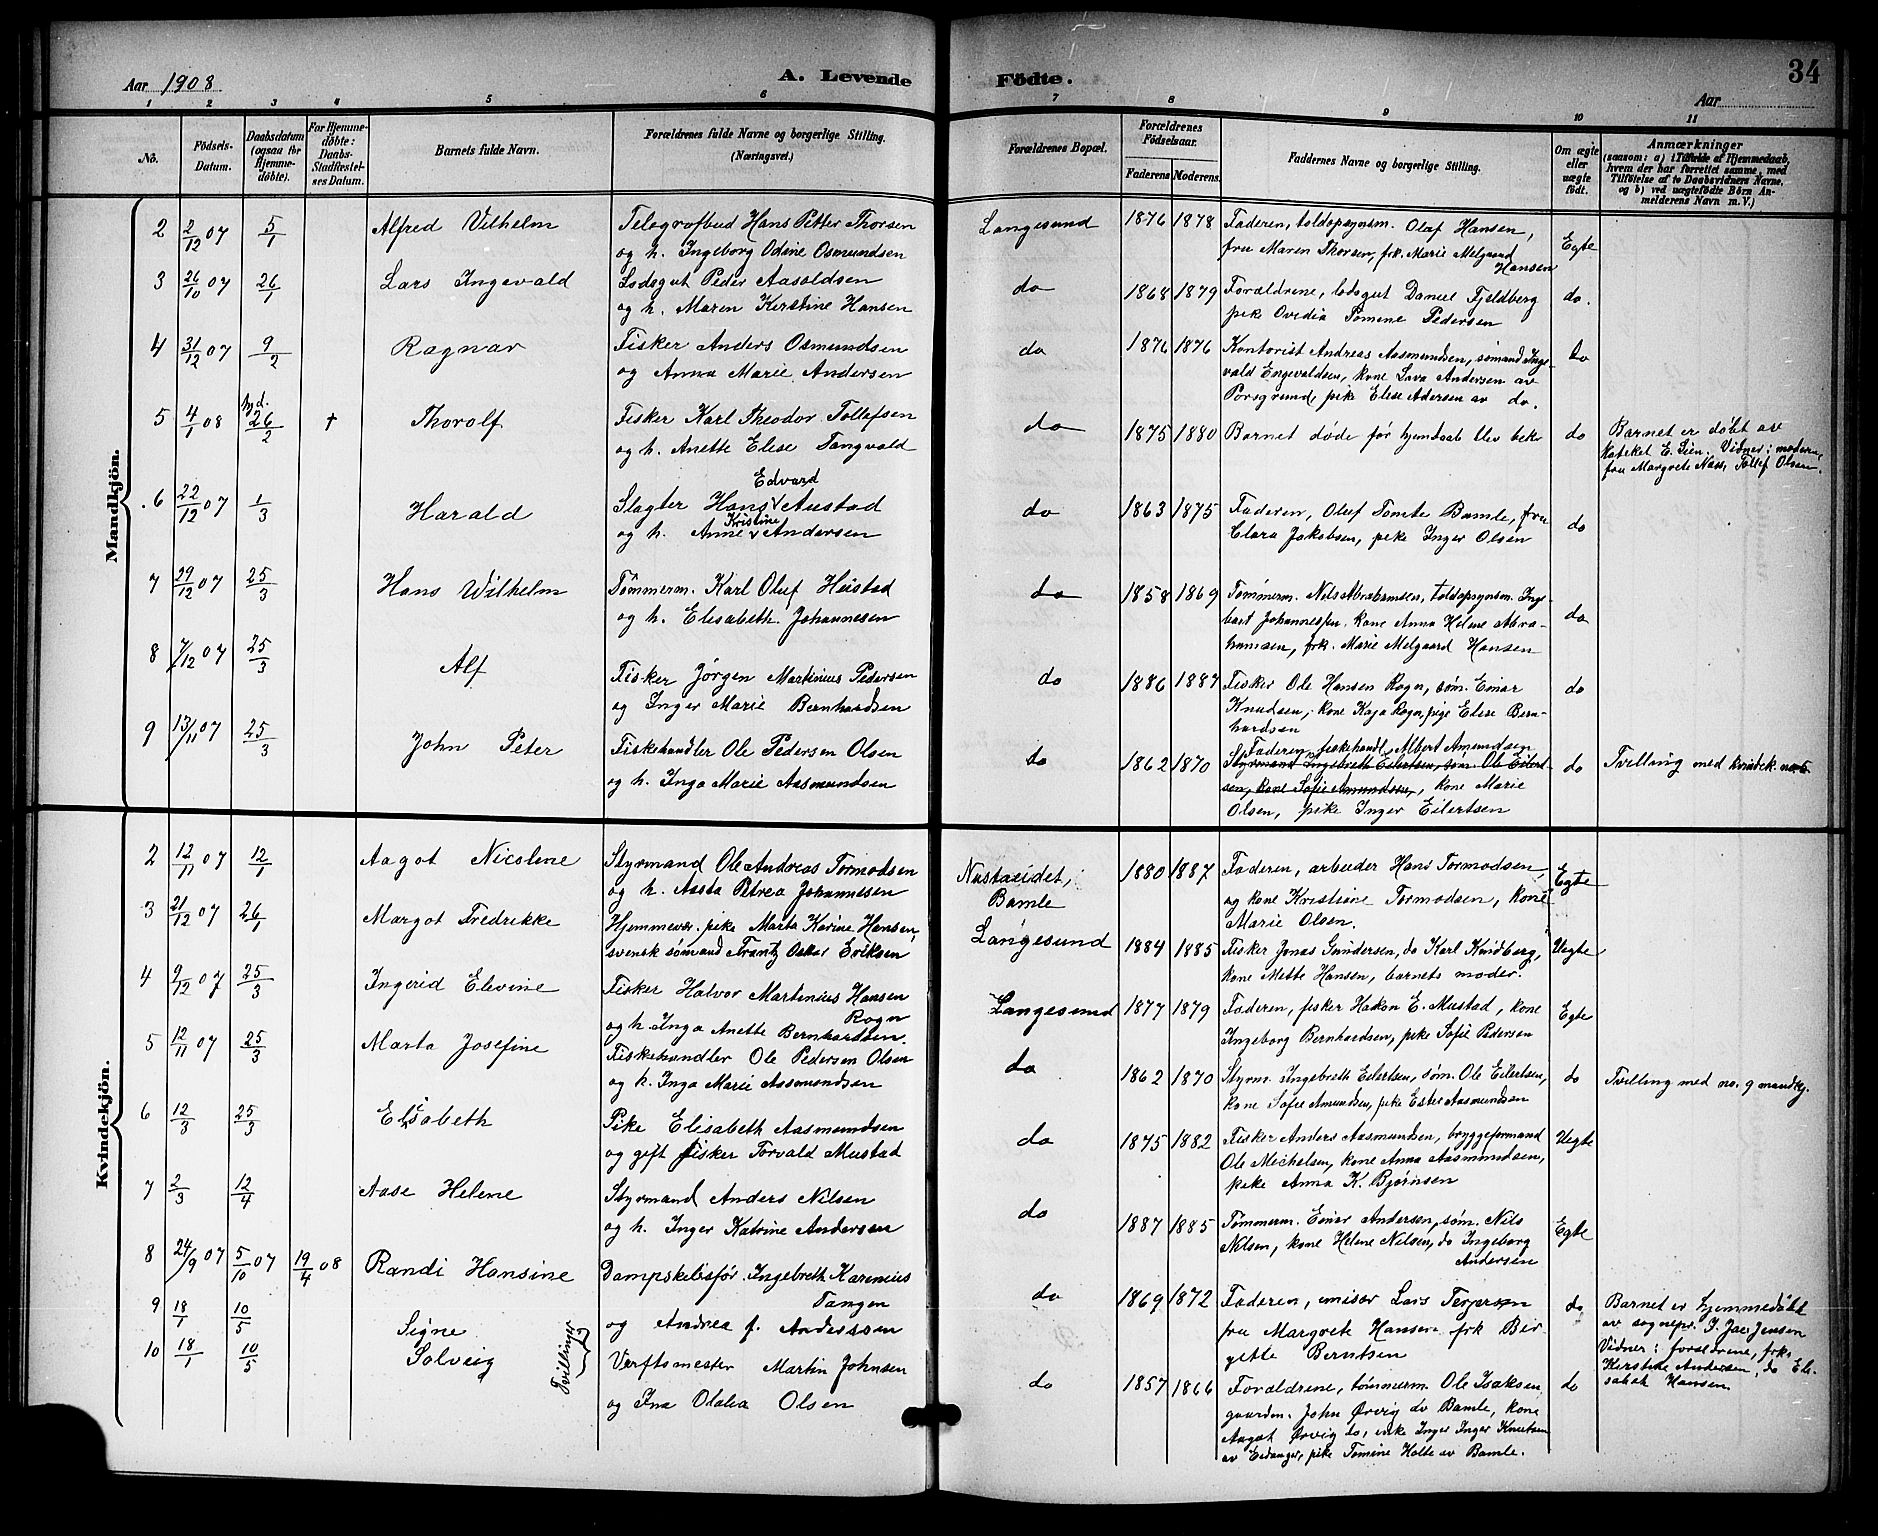 Aar 1908
A. Levende Födte.
34
Aar
1 2 3 4 5 6 7 8 9 10 11
No.
Födsels-Datum.
Daabsdatum (ogsaa for Hjemme-døbte).
For Hjemme-døbte: Daabs-Stadfæstel-ses Datum.
Barnets fulde Navn.
Forældrenes fulde Navne og borgerlige Stilling.
(Næringsvei.)
Forældrenes Bopæl.
Forældrenes Födselsaar.
Faderens Moderens
Faddernes Navne og borgerlige Stilling.
Om ægte eller uægte født.
Anmærkninger
(saasom: a) i Tilfælde af Hjemmedaab, hvem der har forrettet samme, med Tilföielse af to Daabsvidners Navne, og b) ved uægtefödte Börn An-melderens Navn m.V.)
Mandkjön.
2 2/12 07 5/1 Alfred Vilhelm
Telegrafbud Hans Petter Thorsen
og h. Ingeborg Odine Osmundsen
Langesund 1876 1878
Faderen, toldopsynsm. Olaf Hansen,
fru Maren Thorsen, frk. Marie Melgaard
Hansen
Egte
3 26/10 07 26/1 Lars Ingevald
Lodsgut Peder Aasoldsen
og h. Maren Kirstine Hansen
do 1868 1879
Forældrene, lodsgut Daniel Fjeldberg
pike Ovedia Tomine Pedersen
do.
4 31/12 07 9/2 Ragnar
Fisker Anders Osmundsen
og Anna Marie Andersen
do 1876 1876
Kontorist Andreas Aasmundsen, sømand Inge-
vald Engevaldsen, kone Lava Andersen av
Porsgrund, pike Elise Adersen av do.
do
5 4/1 08 hjd. 26/2 † Thorolf
Fisker Karl Theodor Tollefsen
og h. Anette Elise Tangvald
do 1875 1880
Barnet døde før hjemdaab blev bek.
do
Barnet er døbt av
kateket E. Lien. Vidner: moderen,
fru Margrete Næss, Tollef Olsen.
6 22/12 07 1/3 Harald
Edvard
Slagter Hans Austad
Kristine
og h. Anne Andersen
do 1863 1875
Faderen, Oluf Tomte Bamle, fru
Clara Jakobsen, pike Inger Olsen
do
7 29/12 07 25/3 Hans Wilhelm
Tømmerm. Karl Oluf Heistad
og h. Elisabeth Johannesen
do 1858 1869
Tømmerm. Nils Abrahamsen, toldopsynsm. Inge-
bart Johannessen, kone Anna Helene Abra-
hamsen, frk. Marie Melgaard Hansen
do
8 7/12 07 25/3 Alf
Fisker Jørgen Martinius Pedersen
og Inger Marie Bernhardsen
do 1886 1887
Fisker Ole Hansen Rogn, søm. Einar
Knudsen, kone Kaja Rogn, pige Elise Bern-
hardsen
do
9 13/11 07 25/3 John Peter
Fiskehandler Ole Pedersen Olsen
og h. Inga Marie Aasmundsen
do 1862 1870
Faderen, fiskehandl. Albert Amundsen
Styrmand Ingebreth Eilertsen, søm. Ole Eilert-
sen, kone Sofie Amundsen, kone Marie
Olsen, pike Inger Eilertsen
do
Tvilling med kvindek. no 5
Kvindekjön.
2 12/11 07 12/1 Aagot Nicoline
Styrmand Ole Andreas Tormodsen
og h. Aasta Petrea Johannesen
Nustaeidet,
Bamle
1880 1887
Faderen, arbeider Hans Tormodsen,
og kone Kristiane Tormodsen, kone
Marie Olsen.
Egte
3 21/12 07 26/1 Margot Fredrikke
Hjemmevær. pike Marta Karine Hansen,
svensk sømand Frantz Oskar Eriksen
Langesund 1884 1885
Fisker Jonas Gundersen, do Karl Kvidberg,
kone Mette Hansen, barnets moder.
Uegte
4 9/12 07 25/3 Ingerid Elevine
Fisker Halvor Martinius Hansen
Rogn
og h. Inga Anette Bernhardsen.
Langesund 1877 1879
Faderen, fisker Hakon E. Mustad, kone
Ingeborg Bernhardsen, pike Sofie Pedersen
Egte
5 12/11 07 25/3 Marta Josefine
Fiskehandler Ole Pedersen Olsen
og h. Inga Marie Aasmundsen
do 1862 1870
Styrm. Ingebreth Eilertsen, søm. Ole Eilertsen,
kone Sofie Amundsen, pike Ester Aasmundsen
do
Tvilling med no. 9 mandkj.
6 12/3 25/3 Elisabeth
Pike Elisabeth Aasmundsen
og gift fisker Torvald Mustad
do 1875 1882
Fisker Anders Aasmundsen, bryggeformand
Ole Michelsen, kone Anna Aasmundsen,
pike Anna K. Bjørnsen
Uegte
7 2/3 12/4 Aase Helene
Styrmand Anders Nilsen
og h. Inger Katrine Andersen
do 1887 1885
Tømmerm. Einar Andersen, søm. Nils
Nilsen, kone Helene Nilsen, do Ingeborg
Andersen
Egte
8 24/9 07 5/10 07 19/4 08 Randi Hansine
Dampskibsfør. Ingebreth Karenius
Tangen
og Andrea f. Anderssen
do 1869 1872
Faderen, emisær Lars Terjersen
fru Margrete Hansen frk Bir-
gette Berntsen
do
Barnet er hjemmedøbt
av sognepr. I. Jac Jensen
Vidner: forældrene, frk.
Kirstine Andersen, do Eli-
sabeth Hansen
9 18/1 10/5 Signe
10 18/1 10/5 Solveig
Tvillinger
Verftsmester Martin Johnsen
og Ina Olalia Olsen
do 1857 1866
Forældrene, tømmerm. Ole Isaksen
gaardm. John Ørvig do Bamle, kone
Aagot Ørvig do, enke Inger Inger Knutsen
av Eidanger, pike Tomine Holte av Bamle.
do